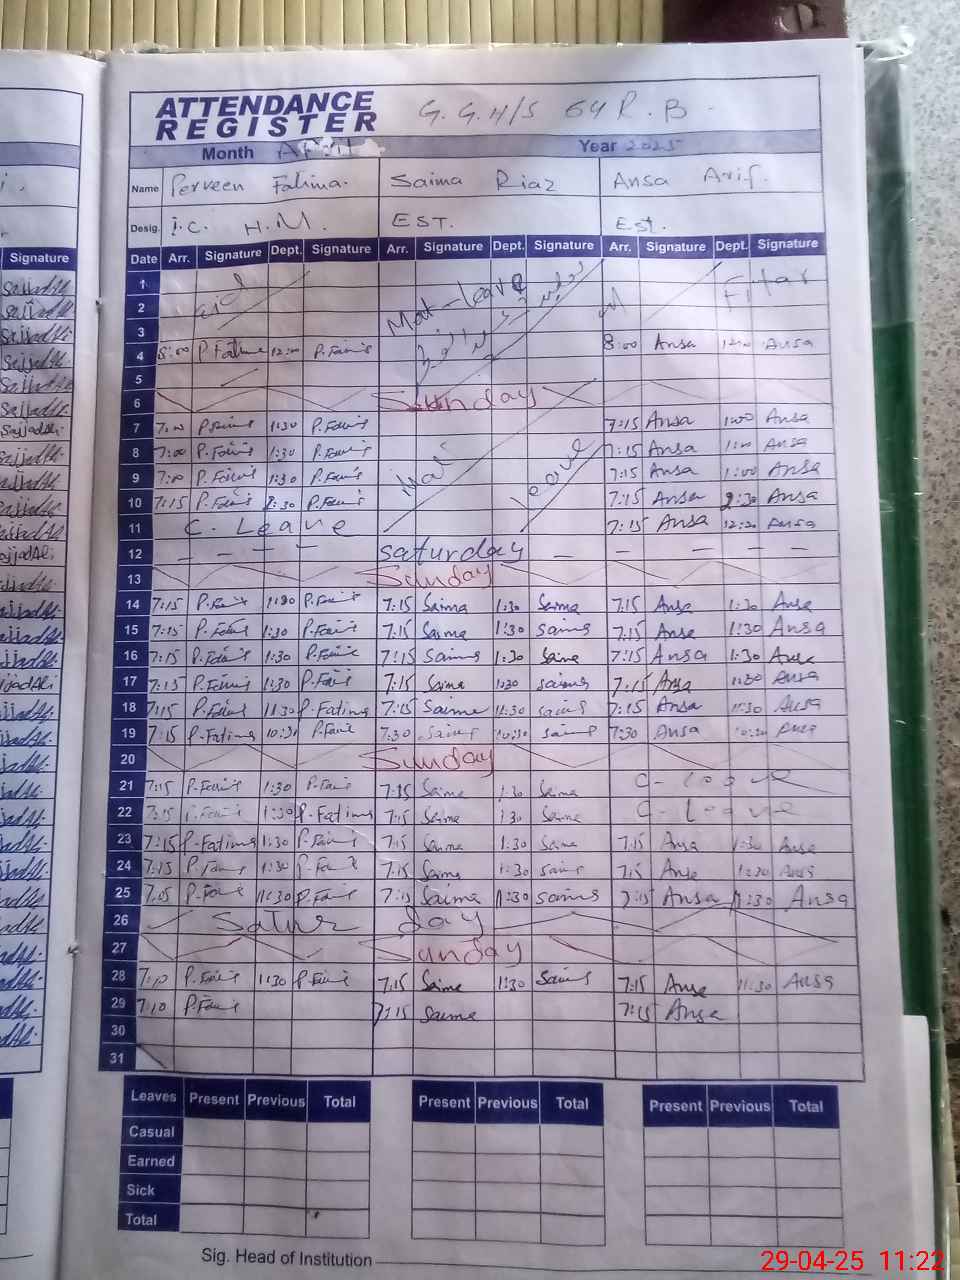 ATTENDANCE
REGISTER
G.G.H/S 64 R.B
Month April Year 2025
Name Perveen Fatima. Saima Riaz Ansa Arif.
Desig. I.C. H.M. EST. Est.
Signature
Date Arr. Signature Dept. Signature Arr. Signature Dept. Signature Arr. Signature Dept. Signature
1 Eid Mat-leave Eid Fitar
2
3
4 8:00 P.Fatima 12:00 P.Fatima 8:00 Ansa 12:00 Ansa
5
6 Sunday
7 7:00 P.Fatima 1:30 P.Fatima 7:15 Ansa 1:00 Ansa
8 7:00 P.Fatima 1:30 P.Fatima Mat leave 7:15 Ansa 1:00 Ansa
9 7:00 P.Fatima 1:30 P.Fatima 7:15 Ansa 1:00 Ansa
10 7:15 P.Fatima P.Fatima 7:15 Ansa 2:30 Ansa
11 C. Leave 7:15 Ansa 12:30 Ansa
12 - - - - Saturday - - - - -
13 Sunday
14 7:15 P.Fatima 1:30 P.Fatima 7:15 Saima 1:30 Saima 7:15 Ansa 1:30 Ansa
15 7:15 P.Fatima 1:30 P.Fatima 7:15 Saima 1:30 Saima 7:15 Ansa 1:30 Ansa
16 7:15 P.Fatima 1:30 P.Fatima 7:15 Saima 1:30 Saima 7:15 Ansa 1:30 Ansa
17 7:15 P.Fatima 1:30 P.Fatima 7:15 Saima 1:30 Saima 7:15 Ansa 1:30 Ansa
18 7:15 P.Fatima 11:30 P.Fatima 7:15 Saima 11:30 Saima 7:15 Ansa 11:30 Ansa
19 7:15 P.Fatima 10:30 P.Fatima 7:30 Saima 10:30 Saima 7:30 Ansa 10:30 Ansa
20 Sunday
21 7:15 P.Fatima 1:30 P.Fatima 7:15 Saima 1:30 Saima C-leave
22 7:15 P.Fatima 1:30 P.Fatima 7:15 Saima 1:30 Saima C-leave
23 7:15 P.Fatima 1:30 P.Fatima 7:15 Saima 1:30 Saima 7:15 Ansa 1:30 Ansa
24 7:15 P.Fatima 1:30 P.Fatima 7:15 Saima 1:30 Saima 7:15 Ansa 1:30 Ansa
25 7:05 P.Fatima 11:30 P.Fatima 7:15 Saima 11:30 Saima 7:15 Ansa 11:30 Ansa
26 Satur day
27 Sunday
28 7:10 P.Fatima 1:30 P.Fatima 7:15 Saima 1:30 Saima 7:15 Ansa 1:30 Ansa
29 7:10 P.Fatima 7:15 Saima 7:15 Ansa
30
31
Leaves Present Previous Total Present Previous Total Present Previous Total
Casual
Earned
Sick
Total
Sig. Head of Institution
29-04-25 11:22